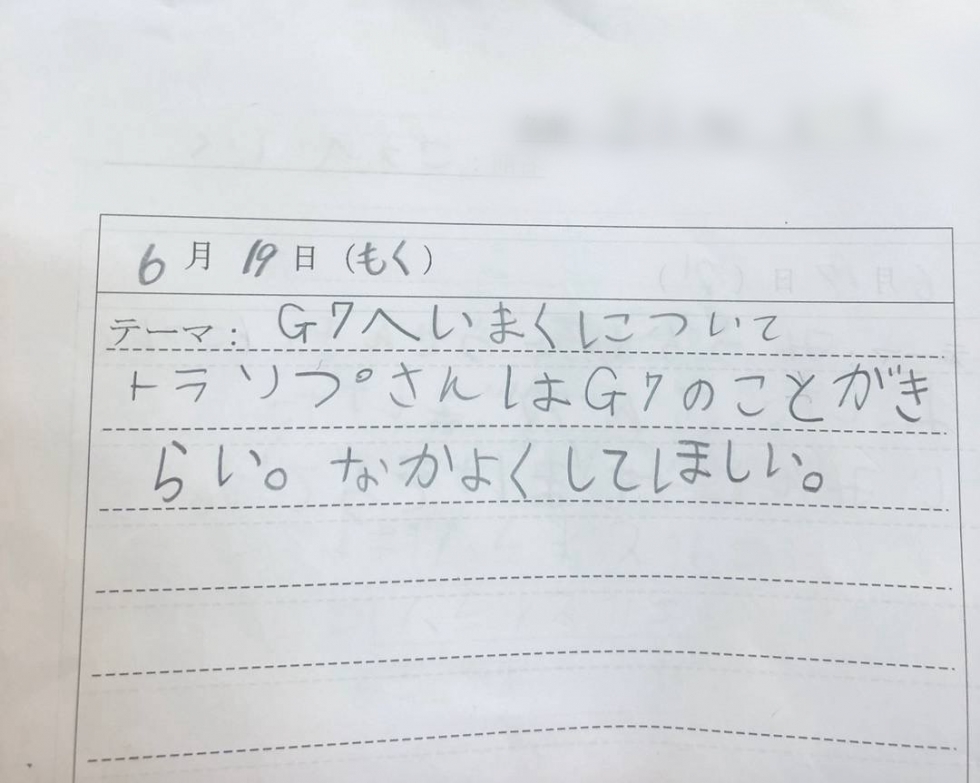 6月19日(もく)
テーマ: G7へいまくについて
トラソプさんはG7のことがき
らい。なかよくしてほしい。